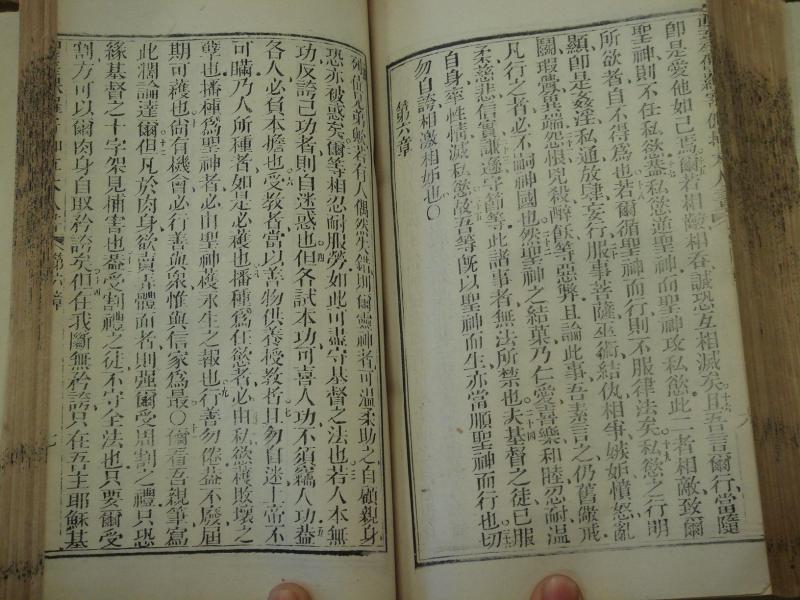 卽是愛他如己焉爾若相齩相吞誠恐互相滅矣且吾言爾行當隨
聖神則不任私欲蓋私慾逆聖神而聖神攻私慾此二者相敵致爾
所欲者自不得爲也若爾循聖神而行則不服律法矣私慾之行明
顯卽是姦淫私通放肆妄行服事菩薩巫術結仇相爭嫉妬憤怒亂
鬭瑕釁異端怨恨兇殺醉飫等惡弊且論此事吾素言之仍舊儆戒
凡行之者必不嗣神國也然聖神之結菓乃仁愛喜樂和睦忍耐溫
柔慈悲信實謙遜守節等此諸事者無法所禁也夫基督之徒已服
自身率性情滅私慾故吾等旣以聖神而生亦當順聖神而行也切
勿自誇相激相妬也〇
第六章
列位兄弟歟若有人偶然失錯則爾靈神者可溫柔助之自顧親身
恐亦被惑矣爾等相忍耐服勞如此可盡守基督之法也若人本無
功反誇己功者則自迷惑也但各試本功可喜人功不須竊人功蓋
各人必負本擔也受教者當以善物供養授教者且勿自迷上帝不
可瞞乃人所種者如是必穫也播種爲在慾者必由私欲穫敗壞之
孽也播種爲聖神者必由聖神穫永生之報也行善勿倦蓋不廢屆
期可穫也尙有機會必行善與衆惟與信家爲最〇爾看吾親筆寫
此濶論達爾但凡於肉身欲賣弄體面者則强爾受周割之禮只恐
緣基督之十字架見捕害也蓋受割禮之徒不守全法也只要爾受
割方可以爾肉身自取矜誇矣但在我斷無矜誇只在吾主耶穌基
第六章